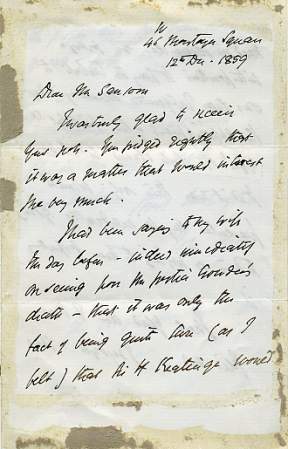 46 Montagu Square
12th Dec. 1859
Dear Mr
I was truly glad to receive
your note. You judged rightly that
it was a matter that would interest
me very much.
I had been saying to my wife
the day before - indeed immediately
on seeing poor Mr Justice
death - that it was only the
fact of being quite sure (as I
felt) that Sir H Keatinge would